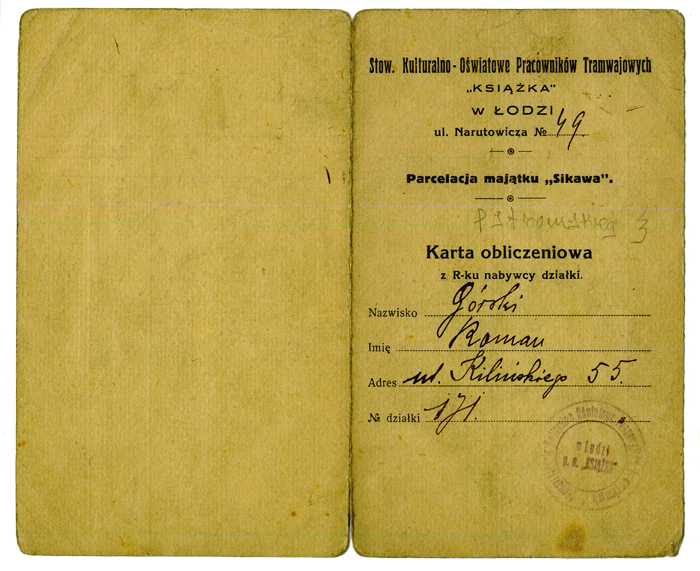 Stow. Kulturalno-Oświatowe Pracowników Tramwajowych
„KSIĄŻKA”
W ŁODZI
ul. Narutowicza № 49.
Parcelacja majątku „Sikawa”.
Karta obliczeniowa
z R-ku nabywcy działki.
Nazwisko Górski
Imię Roman
Adres ul. Kilińskiego 55.
№ działki 171.
w Łodzi
p. n. „KSIĄŻKA”